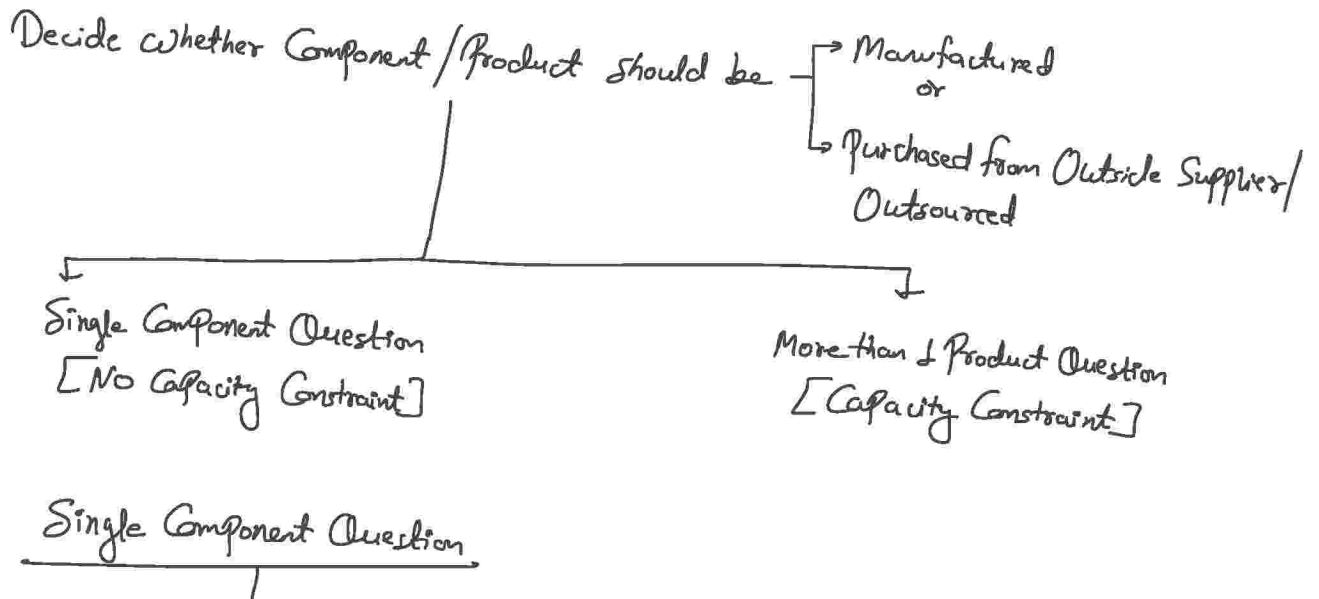 Decide whether Component/Product should be
Manufactured
or
Purchased from Outside Supplier/
Outsourced
Single Component Question
[No Capacity Constraint]
More than 1 Product Question
[Capacity Constraint]
Single Component Question